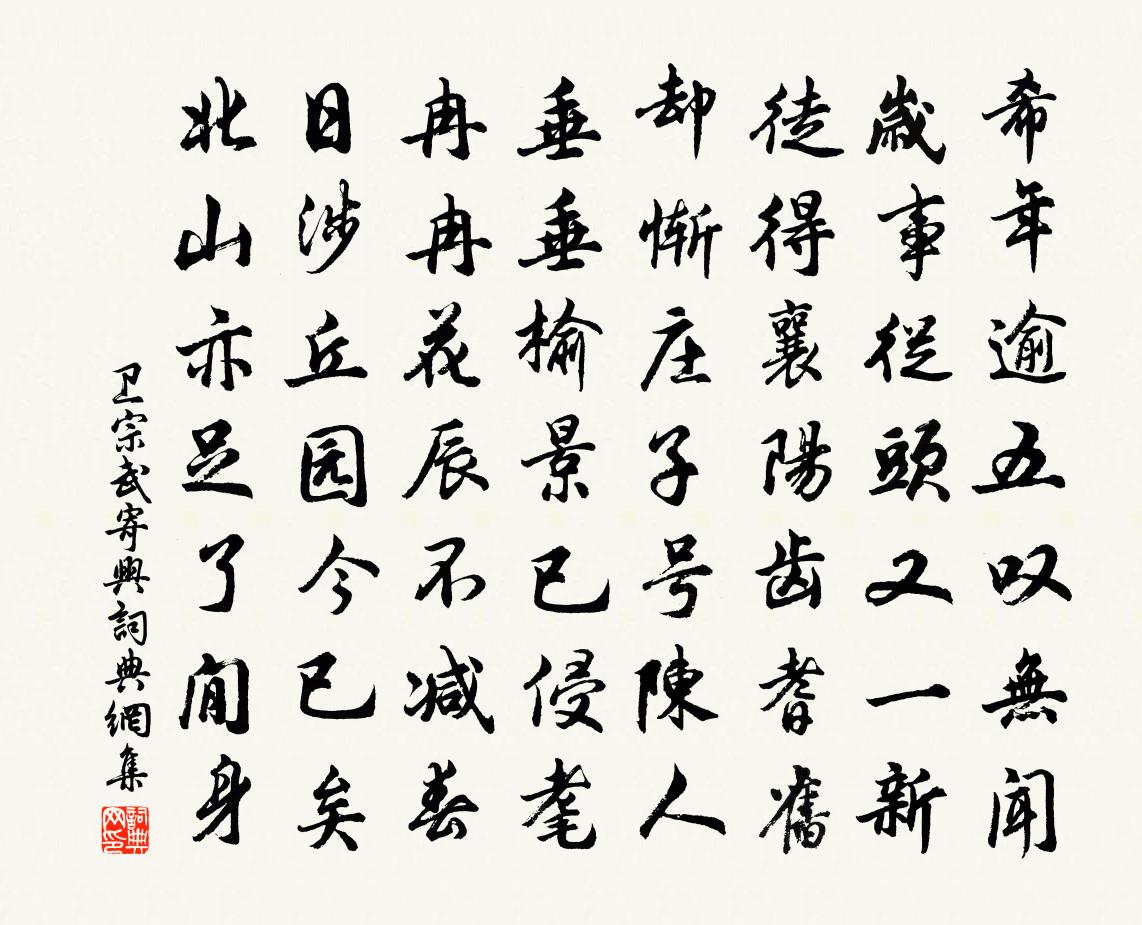 希年逾五叹無聞
歳事從頭又一新
徒得襄陽齿耆舊
却慚庄子号陳人
垂垂榆景已侵耄
冉冉花辰不减春
日涉丘园今已矣
北山亦足了閒身
卫宗武寄興詞典網集
詞典網印